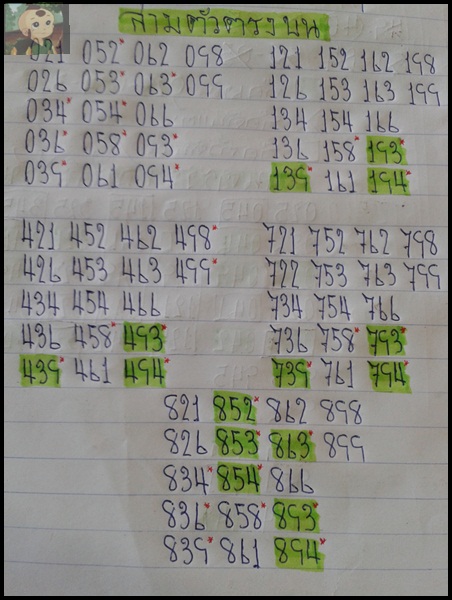 สามตัวตรงบน
021 052* 062 098
026 053* 063* 099
034* 054* 066
036* 058* 093*
039* 061 094*
121 152 162 198
126 153 163 199
134 154 166
136 158* 193*
139* 161 194*
421 452 462 498*
426 453 463 499*
434 454 466
436 458* 493*
439* 461 494*
721 752 762 798
722 753 763 799
734 754 766
736 758* 793*
739* 761 794*
821 852* 862 898
826 853* 863* 899
834* 854* 866
836* 858* 893*
839* 861 894*